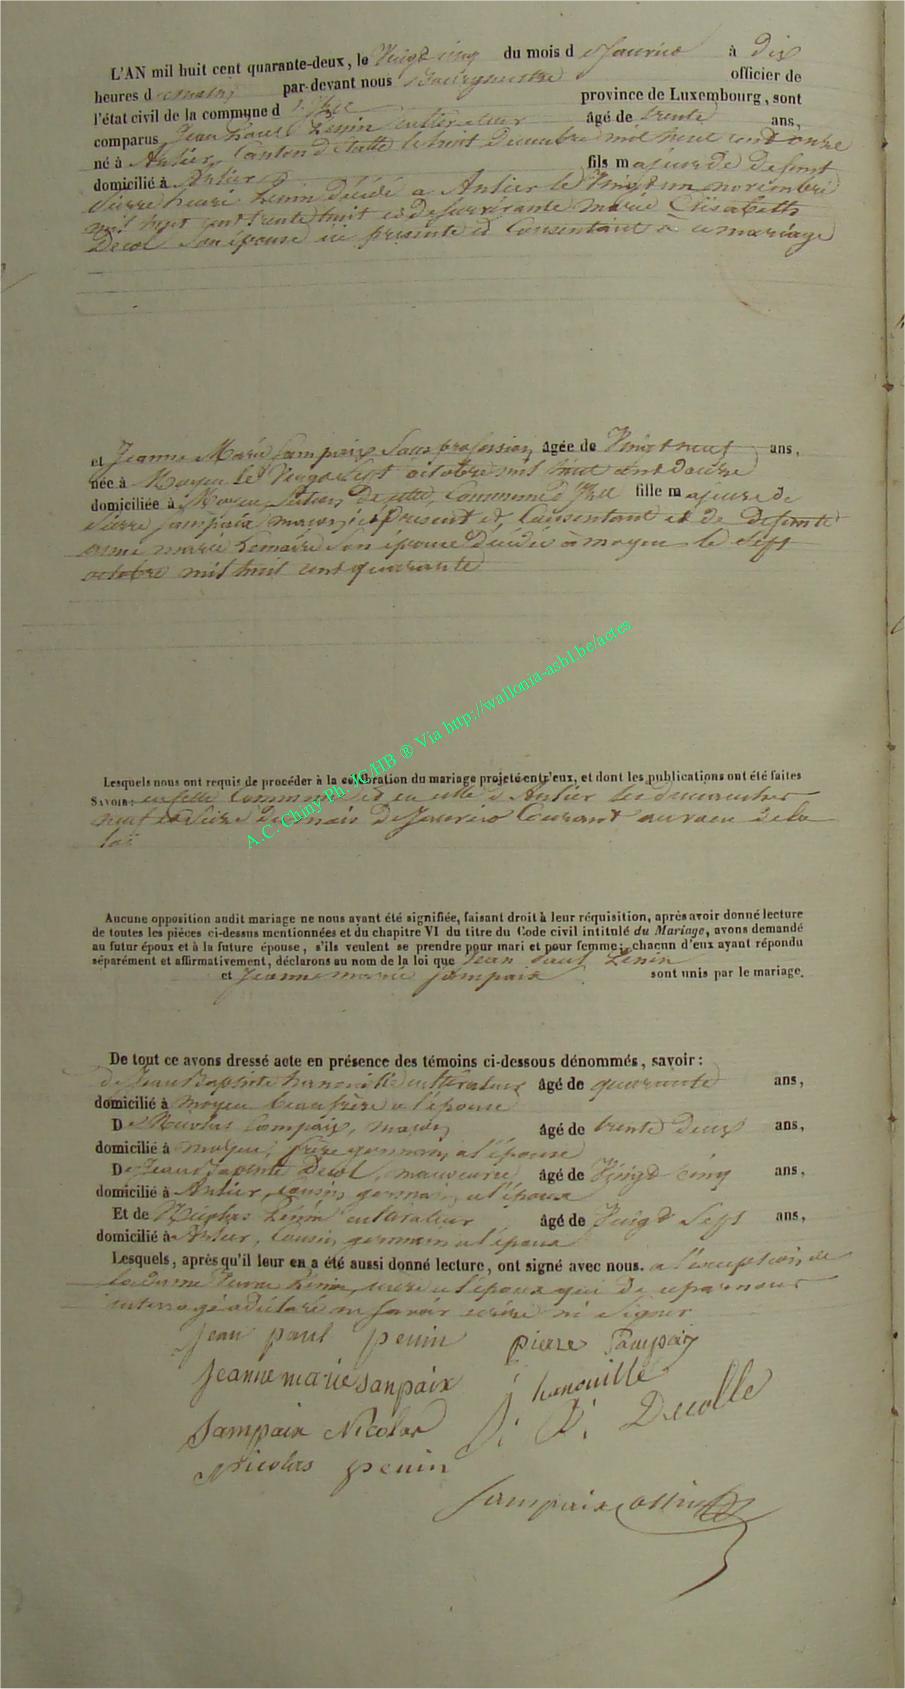 L'AN mil huit cent quarante-deux, le Vingt cinq du mois de Janvier à Dix
heures d matin par-devant nous Bourgmestre officier de
l'état civil de la commune d'Izel province de Luxembourg, sont
comparus Jean Paul Penin cultivateur âgé de trente ans,
né à Anlier, Canton d'Etalle le huit Decembre mil huit cent onze
domicilié à Anlier fils majeur de defunt
Pierre henri Penin décédé a Anlier le Vingt un novembre
mil huit cent trente huit et de survivante Marie Elisabeth
Decol son épouse ici présente et Consentant a ce mariage
et Jeanne Marie Sampaix Sans profession âgée de Vingt neuf ans,
née à Moyen le Vingt Sept octobre mil huit cent douze
domiciliée à Moyen, Section de cette Commune d'Izel fille majeure de
Pierre Sampaix maçon ici Présent et Consentant et de defunte
marie Lemaire Son épouse décédée à moyen le Sept
octobre mil huit cent quarante
Lesquels nous ont requis de procéder à la célébration du mariage projeté entr'eux, et dont les publications ont été faites
SAVOIR: en cette Commune et en celle d'Anlier les dimanches
neuf et Seize du mois de Janvier Courant au vœu de la
loi
Aucune opposition audit mariage ne nous ayant été signifiée, faisant droit à leur réquisition, après avoir donné lecture
de toutes les pièces ci-dessus mentionnées et du chapitre VI du titre du Code civil intitulé du Mariage, avons demandé
au futur époux et à la future épouse, s'ils veulent se prendre pour mari et pour femme; chacun d'eux ayant répondu
séparément et affirmativement, déclarons au nom de la loi que Jean Paul Penin
et Jeanne marie Sampaix sont unis par le mariage.
De tout ce avons dressé acte en présence des témoins ci-dessous dénommés, savoir:
de Jean Baptiste hanouille cultivateur âgé de quarante ans,
domicilié à moyen beaufrère a l'épouse
De Nicolas Sampaix, maçon âgé de trente Deux ans,
domicilié à moyen, frère germain a l'épouse
De Jean Baptiste Decol, âgé de Vingt Cinq ans,
domicilié à Anlier, cousin germain, a l'époux
Et de Nicolas Penin cultivateur âgé de Vingt Sept ans,
domicilié à Anlier, Cousin germain a l'époux
Lesquels, après qu'il leur en a été aussi donné lecture, ont signé avec nous. a l'exception de
la Dame Penin, mere a l'époux qui de ce par nous
interrogé a déclaré ne savoir écrire ni Signer
Jean paul penin pierre Sampaix
Jeanne marie Sanpaix J hanouille
Sampaix Nicolas J: B: Decolle
Nicolas penin
Sampaix
A.C. Chiny Ph. JG/HB ® Via http://wallonia-asbl.be/actes